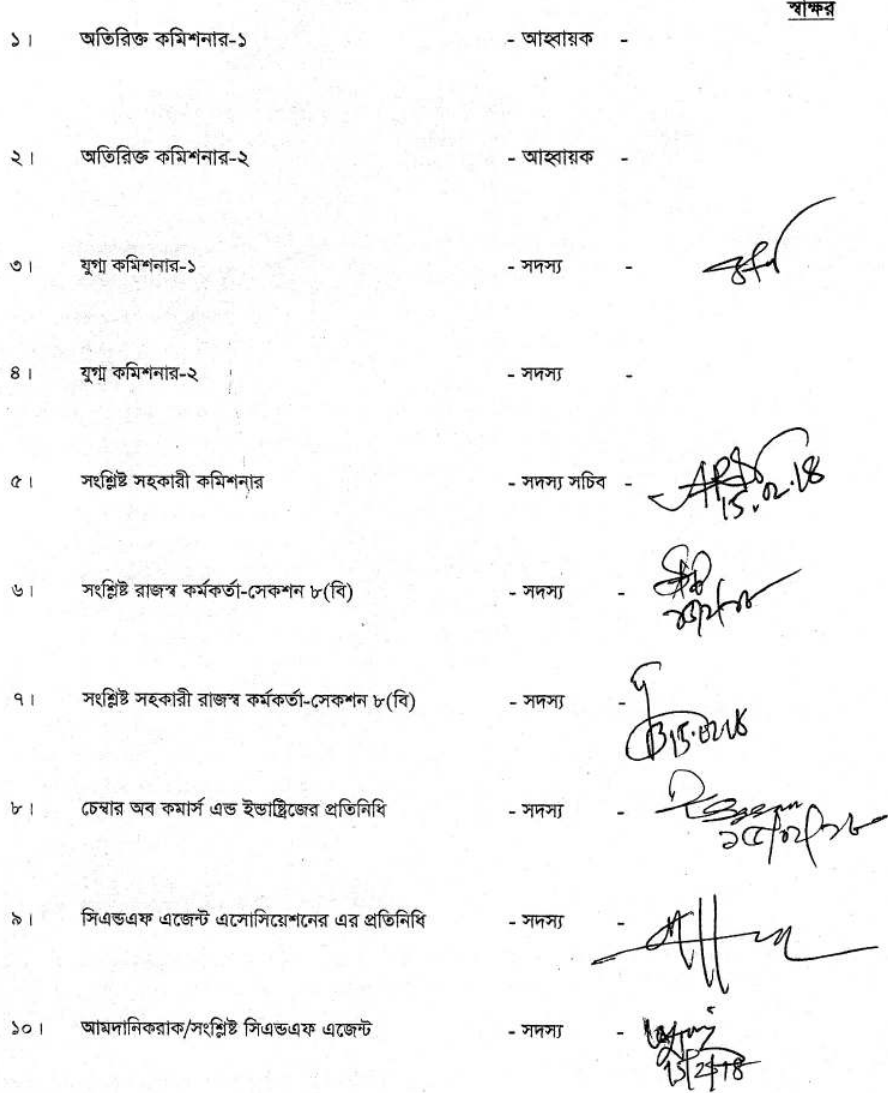 স্বাক্ষর
১। অতিরিক্ত কমিশনার-১ - আহ্বায়ক -
২। অতিরিক্ত কমিশনার-২ - আহ্বায়ক -
৩। যুগ্ম কমিশনার-১ - সদস্য -
৪। যুগ্ম কমিশনার-২ - সদস্য -
৫। সংশ্লিষ্ট সহকারী কমিশনার - সদস্য সচিব -
15.02.18
৬। সংশ্লিষ্ট রাজস্ব কর্মকর্তা-সেকশন ৮(বি) - সদস্য -
৭। সংশ্লিষ্ট সহকারী রাজস্ব কর্মকর্তা-সেকশন ৮(বি) - সদস্য -
15.02.18
৮। চেম্বার অব কমার্স এন্ড ইন্ডাষ্ট্রিজের প্রতিনিধি - সদস্য -
১৫/০২/১৮
৯। সিএন্ডএফ এজেন্ট এসোসিয়েশনের এর প্রতিনিধি - সদস্য -
১০। আমদানিকরাক/সংশ্লিষ্ট সিএন্ডএফ এজেন্ট - সদস্য -
15/2/18